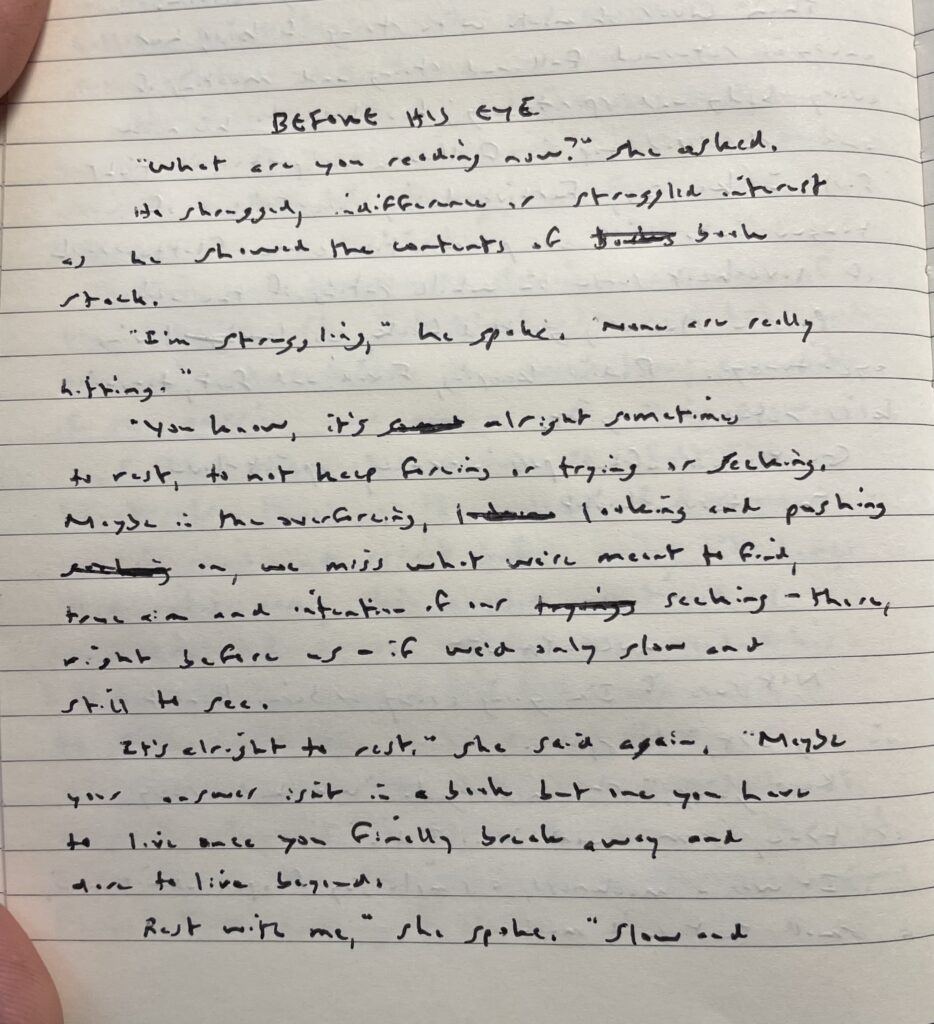 BEFORE HIS EYE
"What are you reading now?" she asked.
He shrugged, indifference or struggled interest
as he showed the contents of book
stack.
"I'm struggling," he spoke. "None are really
hitting."
"You know, it's alright sometimes
to rest, to not keep forcing or trying or seeking.
Maybe in the overforcing, looking and pushing
on, we miss what we're meant to find,
true aim and intention of our trying seeking – there,
right before us – if we'd only slow and
still to see.
It's alright to rest," she said again. "Maybe
your answer isn't in a book but one you have
to live once you finally break away and
dare to live beyond.
Rest with me," she spoke. "Slow and